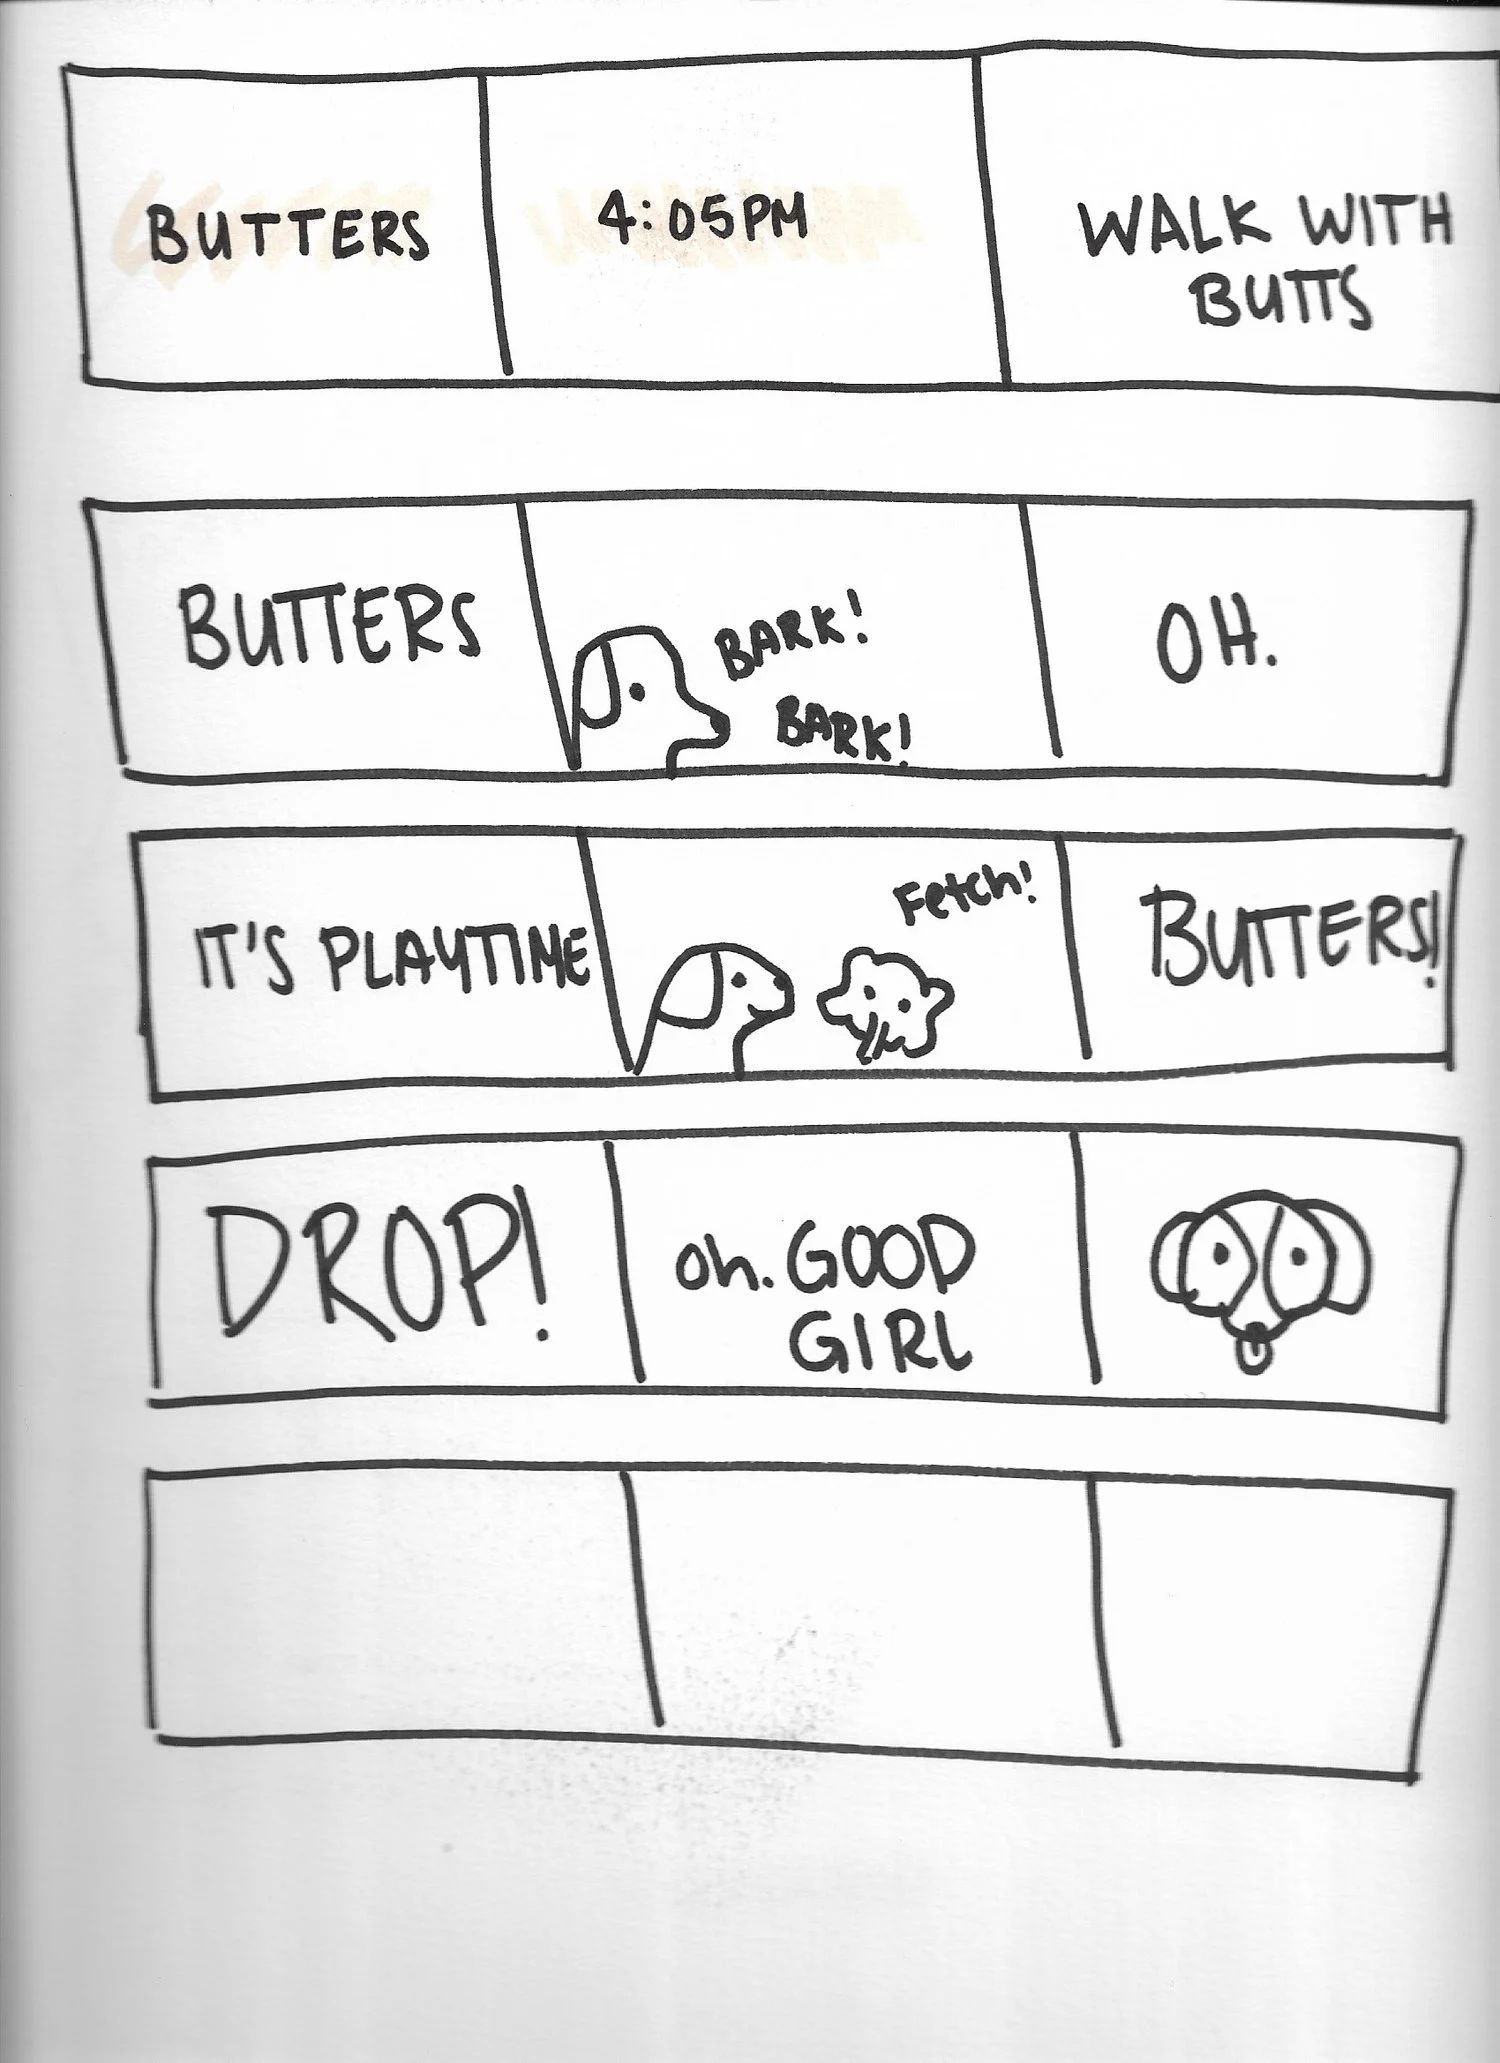 BUTTERS
4:05PM
WALK WITH
BUTTS
BUTTERS
BARK!
BARK!
OH.
IT'S PLAYTIME
Fetch!
BUTTERS!
DROP!
oh. GOOD
GIRL